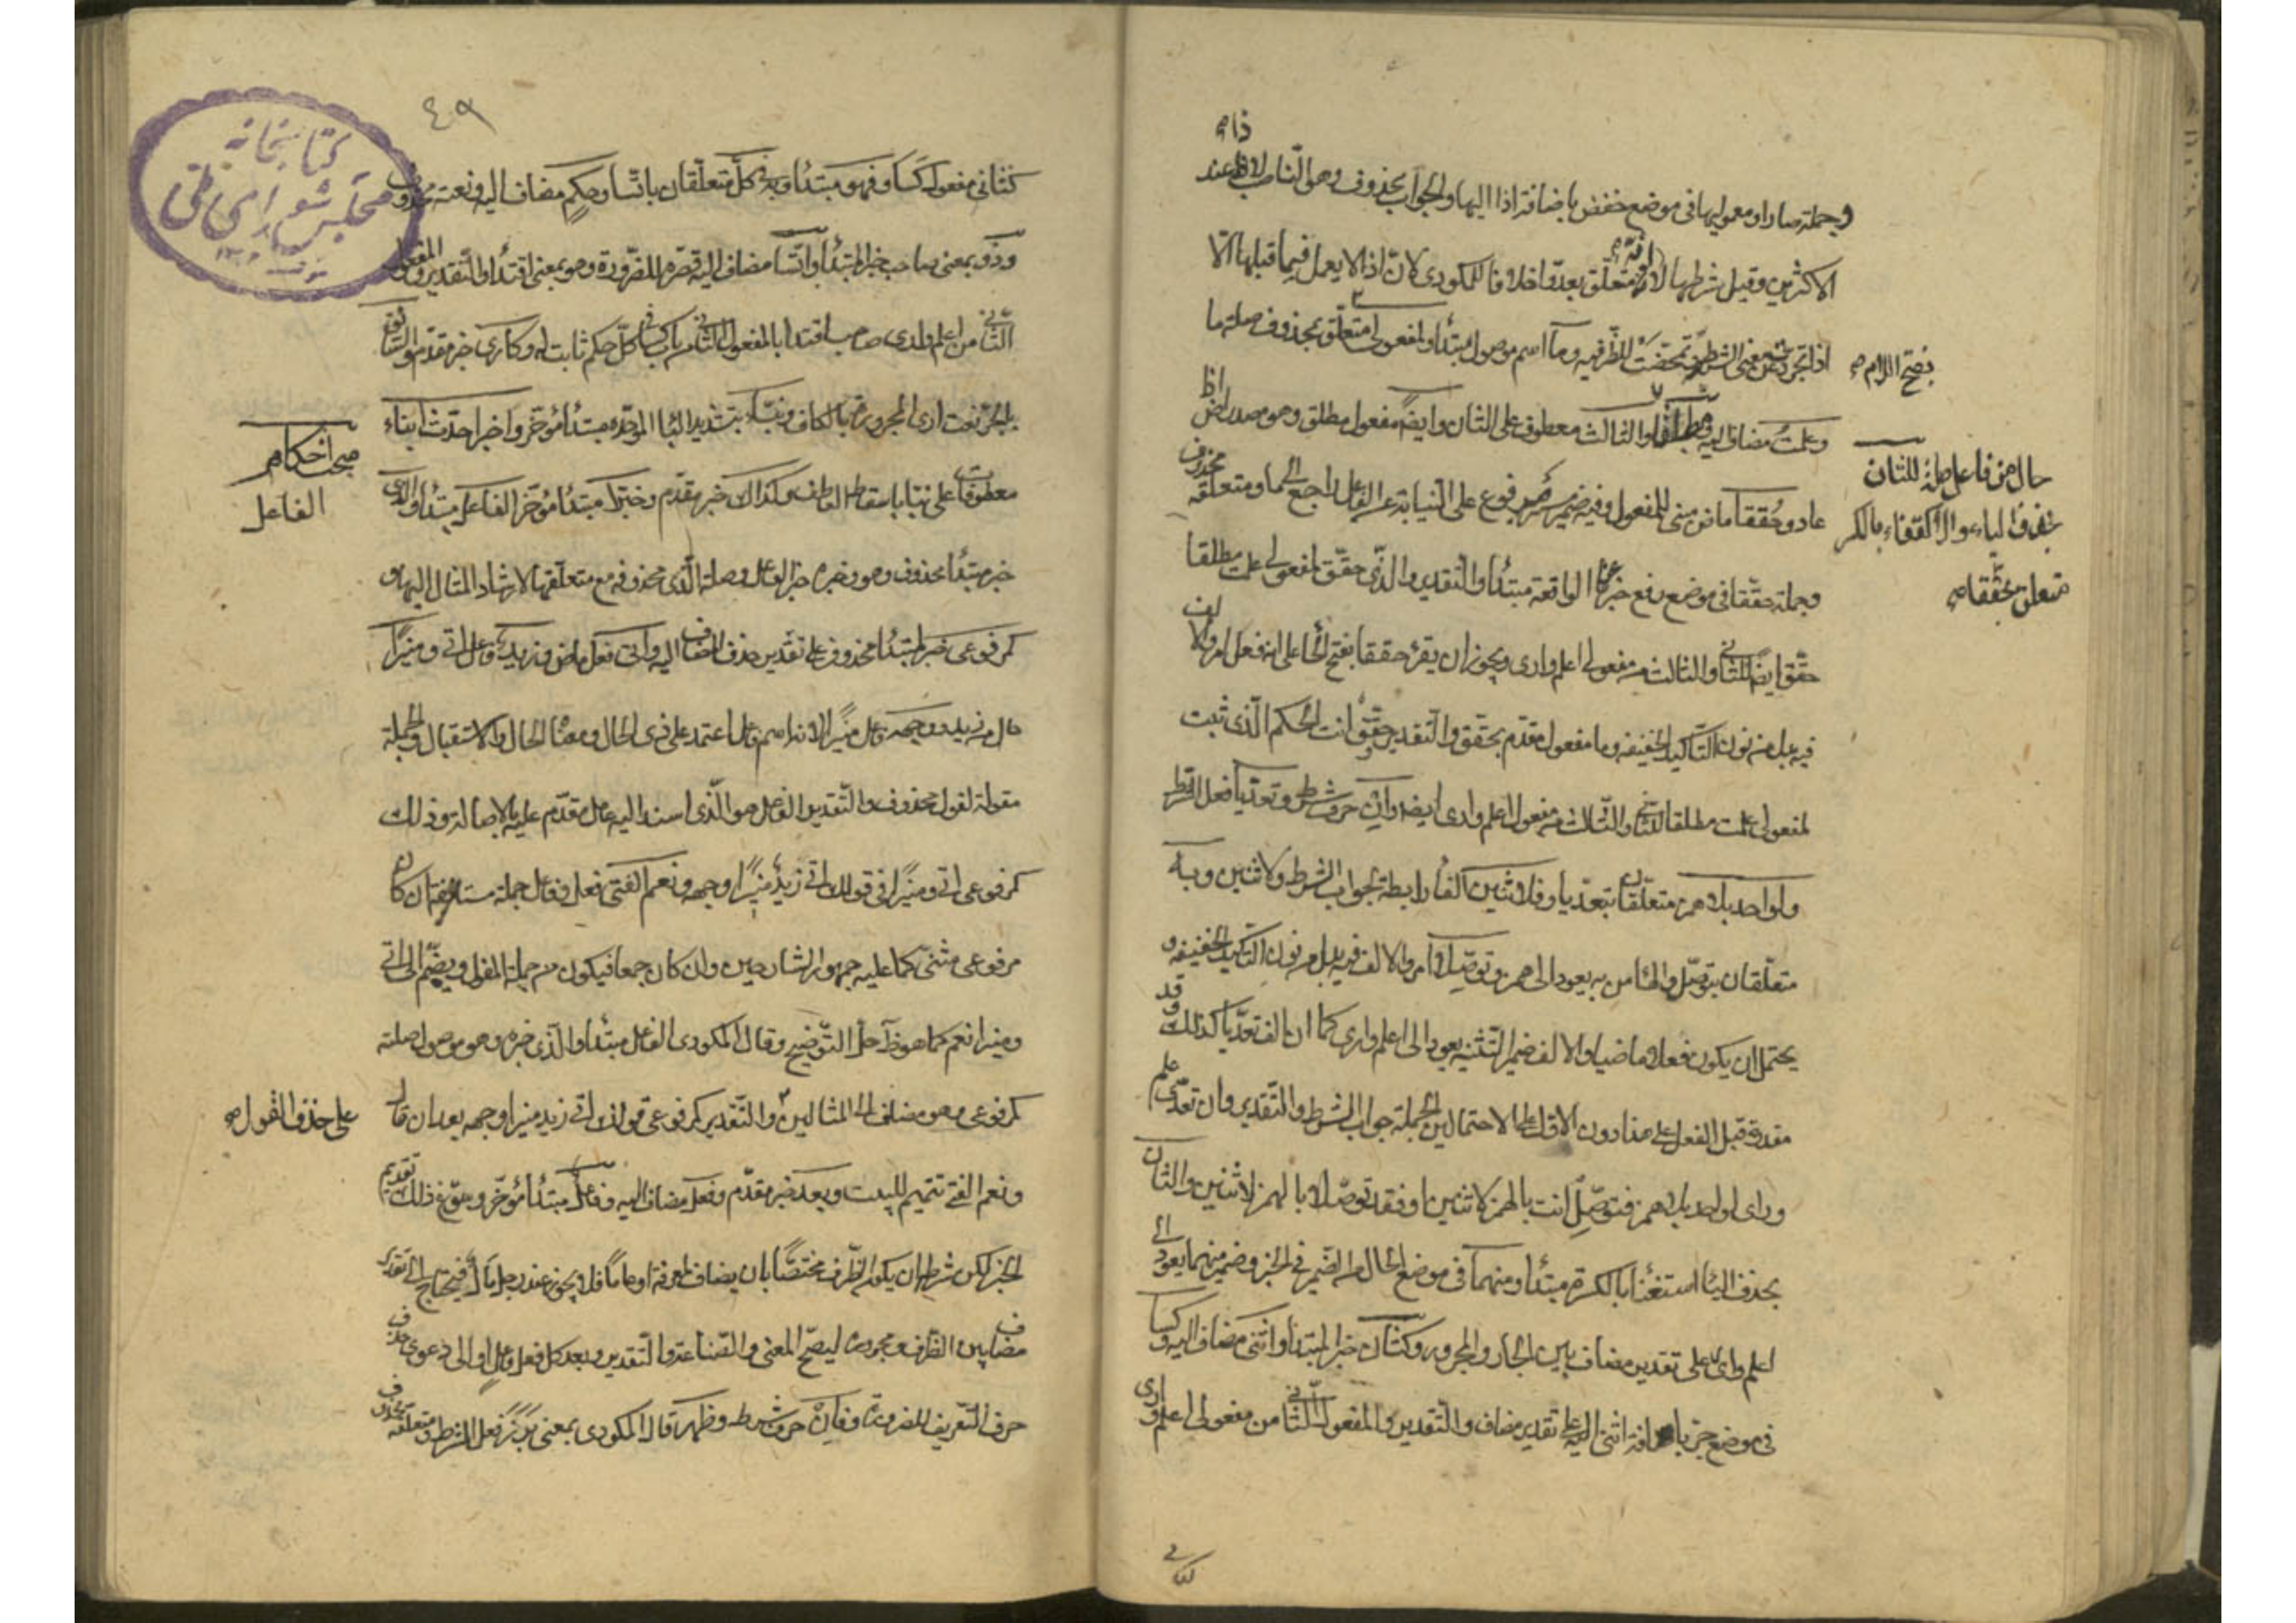 وجملة صارا ومعموليها فى موضع خفض باضافة اذا اليها والجواب محذوف وهو الناصب لاذا عند
الاكثرين وقيل شرطها لا انه متعلق بعدوا خلافا للمكودى لان اذا لا يعمل فيما قبلها الا
اذا تجردت عن معنى الشرط وتمحضت للظرفيه وما اسم موصول مبتدأ ولمفعولى متعلق بمحذوف صلة ما
وعلمت مضاف اليه مطلقا والثالث معطوف على الثان وايضا مفعول مطلق وهو مصدر اض اذا
عاد وحققا ماض مبنى للمفعول وفيه ضمير مرفوع على النيابة عن الفاعل راجع الى ما ومتعلقه محذوف
وجملة حققا فى موضع رفع خبر ما الواقعة مبتدأ والتقدير والذى حقق لمفعولى علمت مطلقا
حقق ايضا للثانى والثالث من مفعولى اعلم وارى ويجوز ان يقرء حققا بفتح الحا على انه فعل امر والالف
فيه بدل من نون التاكيد الخفيفه وما مفعول مقدم بحقق والتقدير حقق انت الحكم الذى ثبت
لمفعولى علمت مطلقا للثانى والثالث من مفعول اعلم وارى ايضا وان حرف شرط وتعديا فعل الشرط
ولواحد بلا همز متعلقان بتعديا وفلاثنين الفا رابطة لجواب الشرط ولاثنين وبه
متعلقان بتوصل والها من به يعود الى همز وتوصلا امر والالف فيه بدل من نون التاكيد الخفيفه و
يحتمل ان يكون فعلا ماضيا والالف ضمير التثنيه يعود الى اعلم وارى كما ان الف تعديا كذلك وقد
مقدرة قبل الفعل على هذا دون الاول وعلى الاحتمالين الجملة جواب الشرط والتقدير وان تعدى علم
وراى لواحد بلا همز فتوصل انت بالهمز لاثنين او فقد توصلا بالهمز لاثنين والثان
بحذف اليا استغنأ بالكسرة مبتدأ ومنهما فى موضع الحال من الضمير فى الخبر وضمير منهما يعود الى
اعلم وارى على تقدير مضاف بين الجار والمجرور وكثان خبر المبتدأ واثنى مضاف اليه وكسا
فى موضع جر باضافة اثنى اليه على تقدير مضاف والتقدير والمفعول الثانى من مفعولى اعلم وارى
بفتح اللام صح
حال من فاعل صلة للثان
بحذف الياء والاكتفاء بالكسر
متعلق بحققا صح
٤٩
كثانى مفعولى كسا وفهو مبتدأ وبه فى كل متعلقان بائتسا وحكم مضاف اليه ونعته محذوف
وذو بمعنى صاحب خبر المبتدأ وائتسا مضاف اليه قصره للضرورة وهو بمعنى اقتدأ والتقدير والمفعول
الثانى من اعلم وارى صاحب اقتدا بالمفعول الثانى من باب كسا فى كل حكم ثابت له وكارى خبر مقدم والسابق
بالجر نعت ارى المجرورة بالكاف ونبا بتشديد البا الموحده مبتدأ مؤخر واخبرا حدث انباء
معطوفات على نبا باسقاط العاطف وكذاك خبر مقدم وخبرا مبتدأ مؤخر الفاعل مبتدأ والذى
خبر مبتدأ محذوف وهو وخبره خبر الفاعل وصلة الذى محذوفه مع متعلقها لارشاد المثال اليها و
كمرفوعى خبر لمبتدأ محذوف على تقدير حذف المضاف اليه واتى فعل ماض وزيد فاعل اتى ومنيرا
حال من زيد ووجهه فاعل منيرا لانه اسم فاعل اعتمد على ذى الحال ومعناه الحال والاستقبال والجملة
مقولة لقول محذوف والتقدير الفاعل هو الذى اسند اليه عامل مقدم عليه بالاصالة وذلك
كمرفوعى اتى ومنيرا فى قولك اتى زيد منيرا وجهه ونعم الفتى فعل وفاعل جملة مستانفة ان كان
مرفوعى مثنى كما عليه جمهور الشارحين وان كان جمعا فيكون من جملة المقول ويضم الى اتى
ومنيرا نعم كما هو ظاهر التوضيح وقال المكودى الفاعل مبتدأ والذى خبره وهو موصول صلته
كمرفوعى وهو مضاف الى المثالين والتقدير كمرفوعى قولك اتى زيد منيرا وجهه بعد ان قال
ونعم الفتى تتميم للبيت وبعد خبر مقدم وفعل مضاف اليه وفاعل مبتدأ مؤخر وسوغ ذلك تقديم
الخبر لكن شرطه ان يكون الظرف مختصا بان يضاف لمعرفة او عاما فلا يجوز عند رجل مال فيحتاج الى تقدير
مضاف بين الظرف ومجروره ليصح المعنى والصناعة والتقدير وبعد كل فعل فاعل او الى دعوى حذف
حرف التعريف للضرورة وفان حرف شرط وظهر قال المكودى بمعنى برز فعل الشرط ومتعلقه محذوف
مبحث احكام
الفاعل
على حذف القول صح
كتابخانه
مجلس شوراى ملى